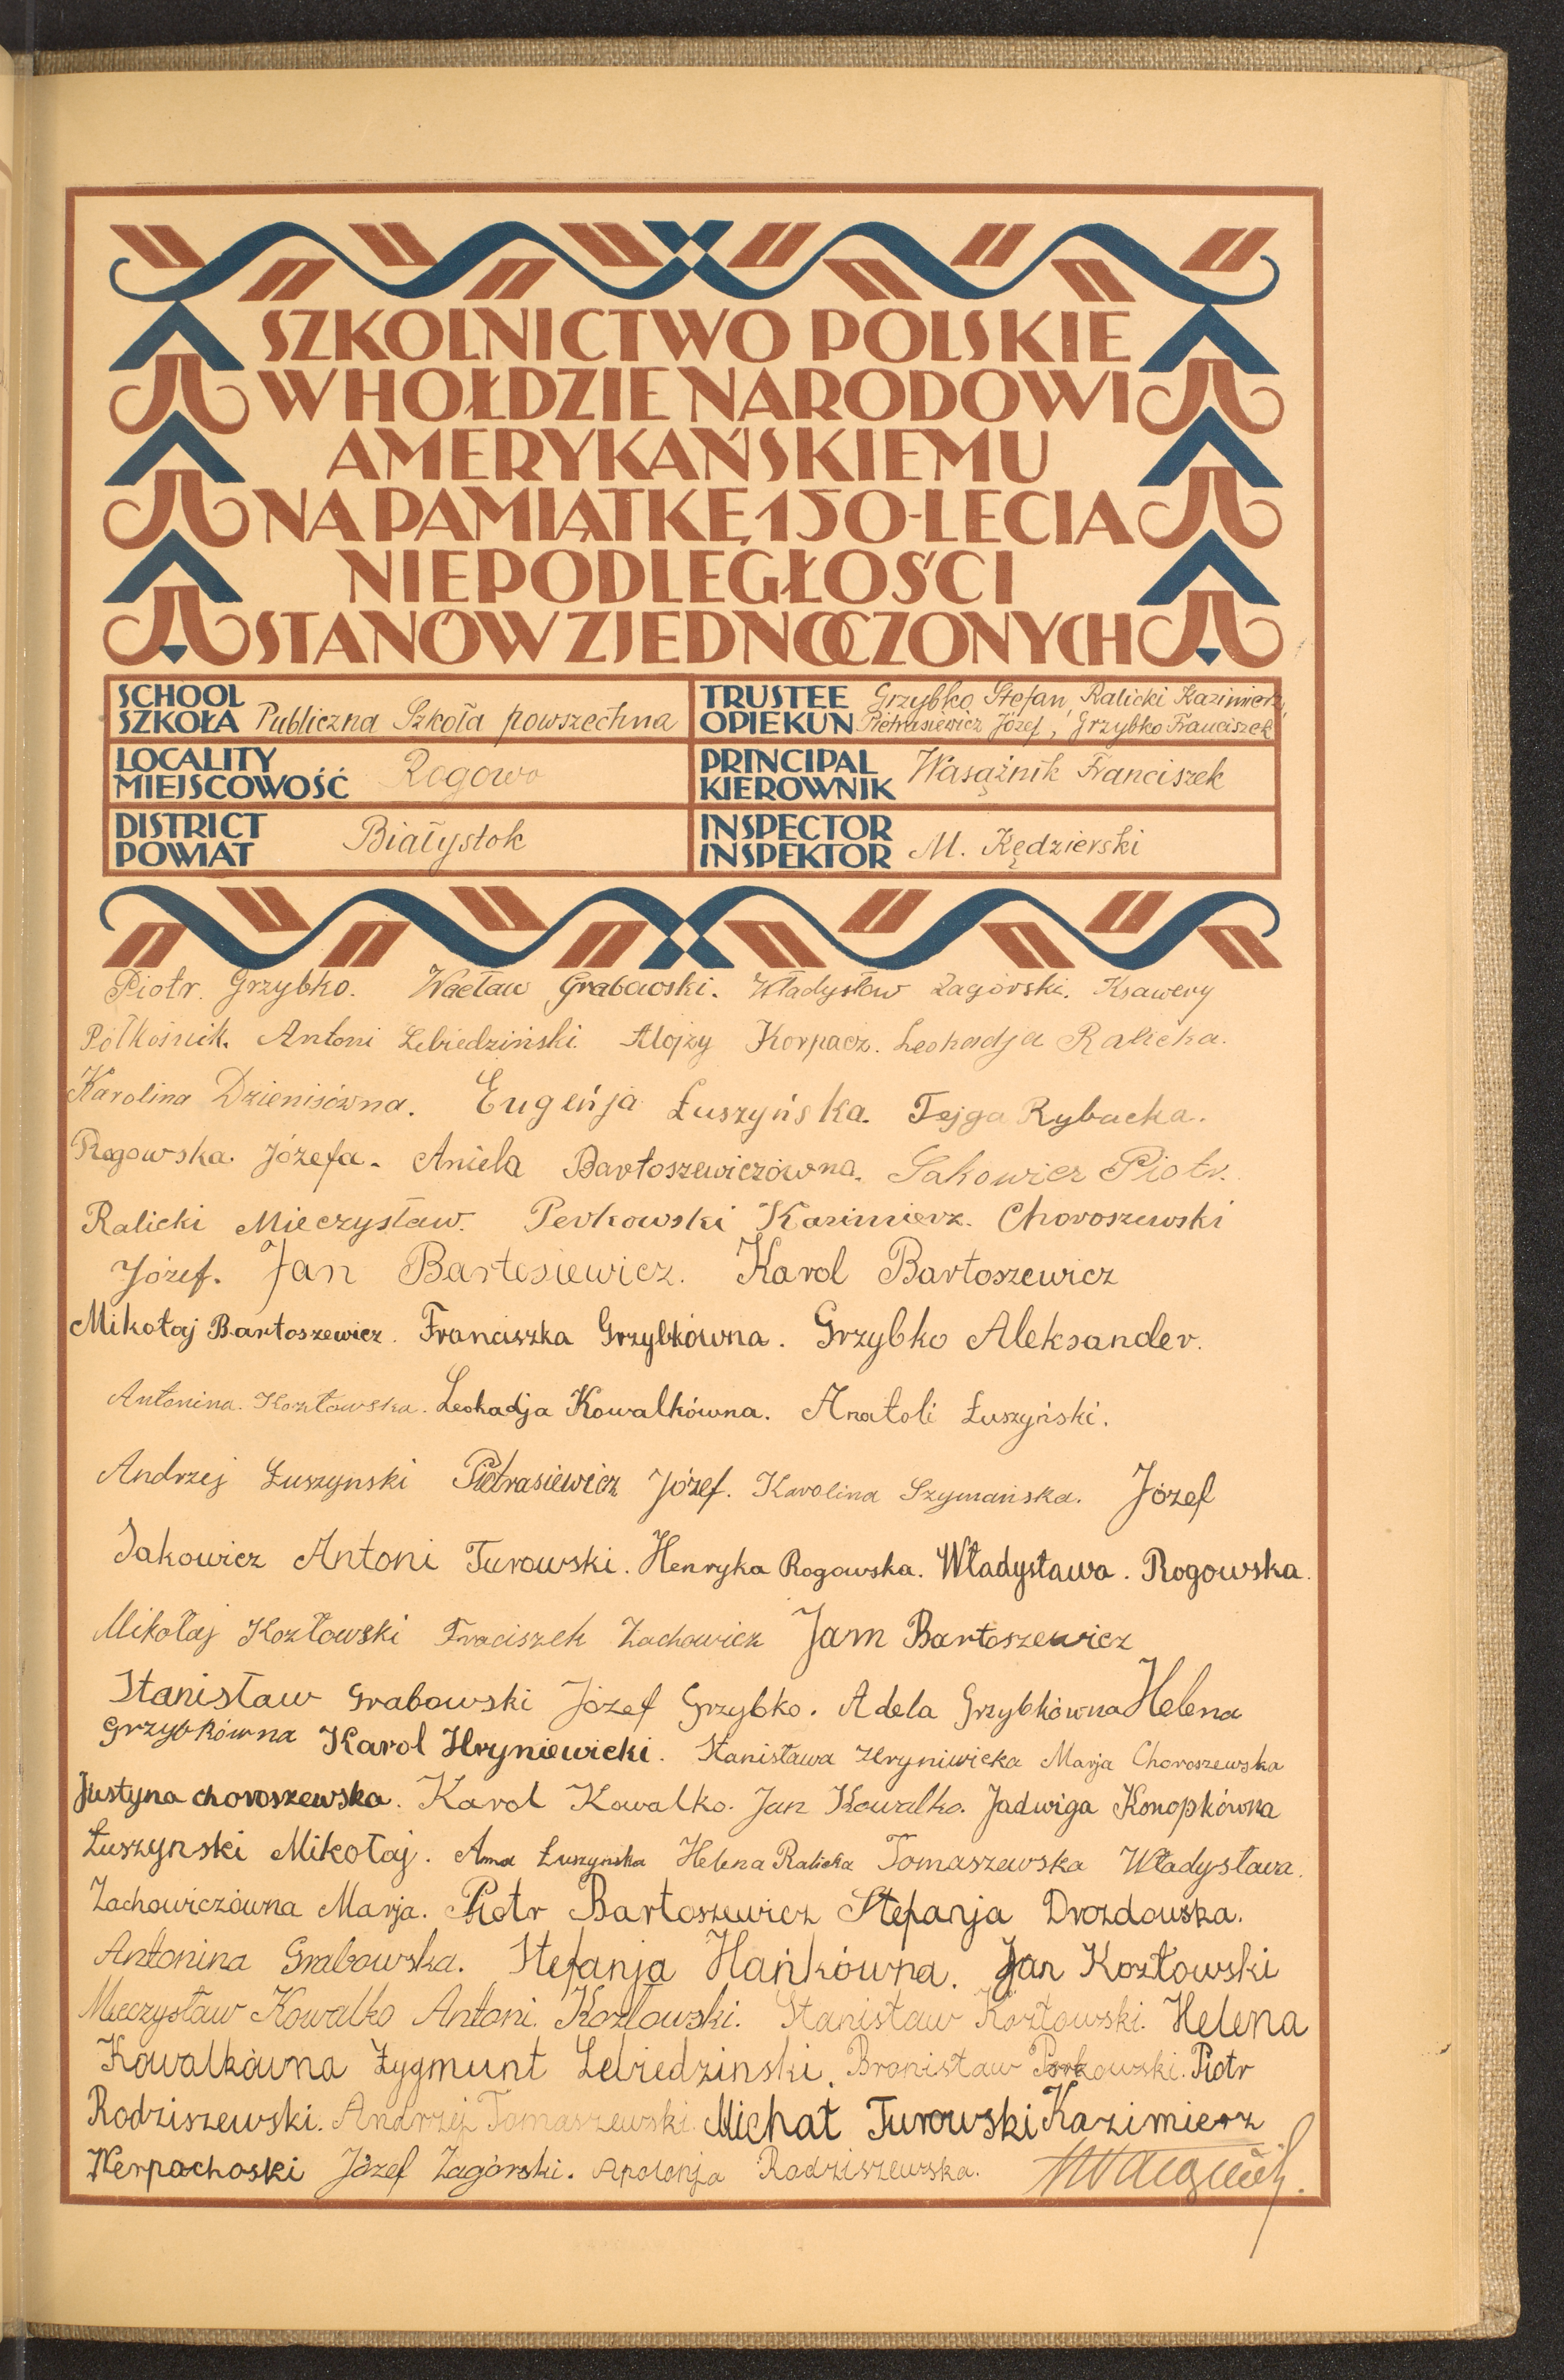 SZKOLNICTWO POLSKIE
W HOŁDZIE NARODOWI
AMERYKAŃSKIEMU
NA PAMIĄTKĘ 150-LECIA
NIEPODLEGŁOŚCI
STANÓW ZJEDNOCZONYCH
SCHOOL
SZKOŁA Publiczna Szkoła powszechna
TRUSTEE Grzybko Stefan, Ralicki Kazimierz,
OPIEKUN Pietrasiewicz Józef, Grzybko Franciszek
LOCALITY
MIEJSCOWOŚĆ Rogowo
PRINCIPAL
KIEROWNIK Wasążnik Franciszek
DISTRICT
POWIAT Białystok
INSPECTOR
INSPEKTOR M. Kędzierski
Piotr. Grzybko. Wacław Grabowski. Władysław Zagórski. Ksawery
Półkośnik. Antoni Lebiedziński. Alojzy Korpacz. Leokadja Ralicka.
Karolina Dzienisówna. Eugeńja Łuszyńska. Tejga Rybacka.
Rogowska Józefa. Aniela Bartoszewiczówna. Sakowicz Piotr.
Ralicki Mieczysław. Perkowski Kazimierz. Choroszewski
Józef. Jan Bartosiewicz. Karol Bartoszewicz
Mikołaj Bartoszewicz. Franciszka Grzybkówna. Grzybko Aleksander.
Antonina. Kozłowska. Leokadja Kowalkówna. Anatoli Łuszyński.
Andrzej Łuszynski Pietrasiewicz Józef. Karolina Szymańska. Józef
Sakowicz Antoni Turowski. Henryka Rogowska. Władysława. Rogowska.
Mikołaj Kozłowski Fraciszek Zachowicz Jam Bartoszewicz
Stanisław Grabowski Józef Grzybko. Adela Grzybkówna Helena
Grzybkówna Karol Hryniewicki. Stanisława Hryniwicka Marja Choroszewska
Justyna choroszewska. Karol Kowalko. Jan Kowalko. Jadwiga Konopkówna
Łuszynski Mikołaj. Anna Łuszyńska Helena Ralicka Tomaszewska Władysława.
Zachowiczówna Marja. Piotr Bartoszewicz Stefanja Drozdowska.
Antonina Grabowska. Stefanja Hańkówna. Jan Kozłowski
Mieczysław Kowalko Antoni. Kozłowski. Stanisław Kozłowski. Helena
Kowalkówna Zygmunt Lebiedzinski. Bronisław Porkowski. Piotr
Rodziszewski. Andrzej Tomaszewski. Michał Turowski Kazimierz
Werpachoski Józef Zagórski. Apolonja Radziszewska.